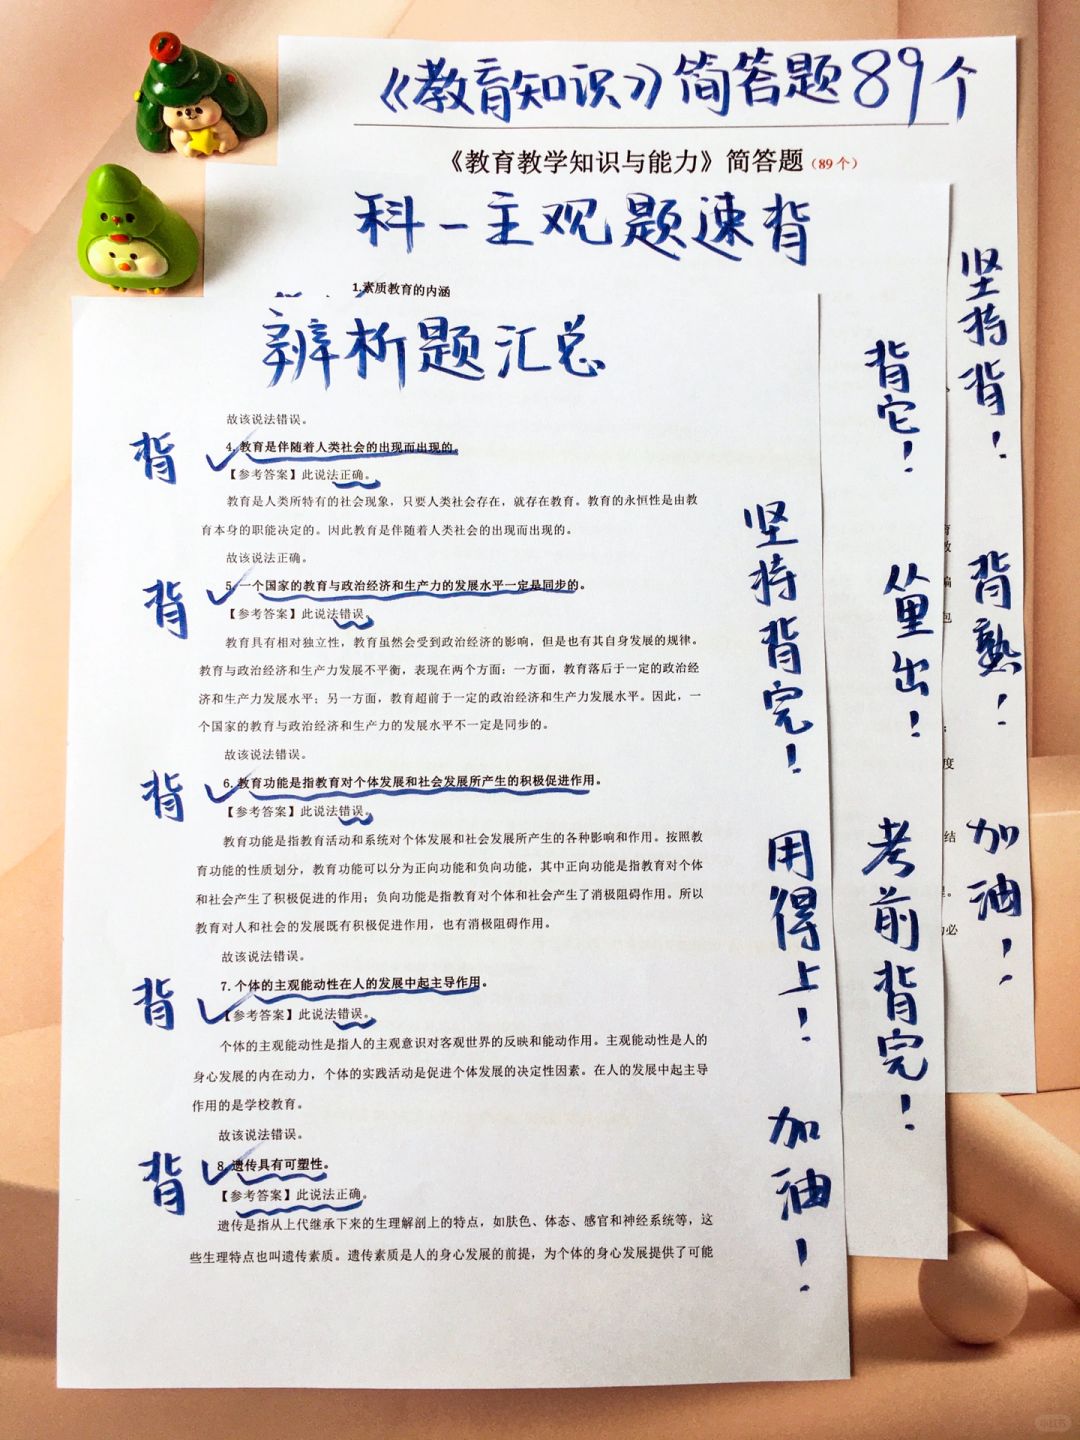 《教育知识》简答题89个
《教育教学知识与能力》简答题（89个）
科一主观题速背
1.素质教育的内涵
辨析题汇总
故该说法错误。
背
4. 教育是伴随着人类社会的出现而出现的。
【参考答案】此说法正确。
教育是人类所特有的社会现象，只要人类社会存在，就存在教育。教育的永恒性是由教
育本身的职能决定的。因此教育是伴随着人类社会的出现而出现的。
故该说法正确。
背
5. 一个国家的教育与政治经济和生产力的发展水平一定是同步的。
【参考答案】此说法错误。
教育具有相对独立性，教育虽然会受到政治经济的影响，但是也有其自身发展的规律。
教育与政治经济和生产力发展不平衡，表现在两个方面：一方面，教育落后于一定的政治经
济和生产力发展水平；另一方面，教育超前于一定的政治经济和生产力发展水平。因此，一
个国家的教育与政治经济和生产力的发展水平不一定是同步的。
故该说法错误。
背
6. 教育功能是指教育对个体发展和社会发展所产生的积极促进作用。
【参考答案】此说法错误。
教育功能是指教育活动和系统对个体发展和社会发展所产生的各种影响和作用。按照教
育功能的性质划分，教育功能可以分为正向功能和负向功能，其中正向功能是指教育对个体
和社会产生了积极促进的作用；负向功能是指教育对个体和社会产生了消极阻碍作用。所以
教育对人和社会的发展既有积极促进作用，也有消极阻碍作用。
故该说法错误。
背
7. 个体的主观能动性在人的发展中起主导作用。
【参考答案】此说法错误。
个体的主观能动性是指人的主观意识对客观世界的反映和能动作用。主观能动性是人的
身心发展的内在动力，个体的实践活动是促进个体发展的决定性因素。在人的发展中起主导
作用的是学校教育。
故该说法错误。
背
8. 遗传具有可塑性。
【参考答案】此说法正确。
遗传是指从上代继承下来的生理解剖上的特点，如肤色、体态、感官和神经系统等，这
些生理特点也叫遗传素质。遗传素质是人的身心发展的前提，为个体的身心发展提供了可能
坚持背完！
用得上！
加油！
背它！
从里出！
考前背完！
坚持背！
背熟！
加油！